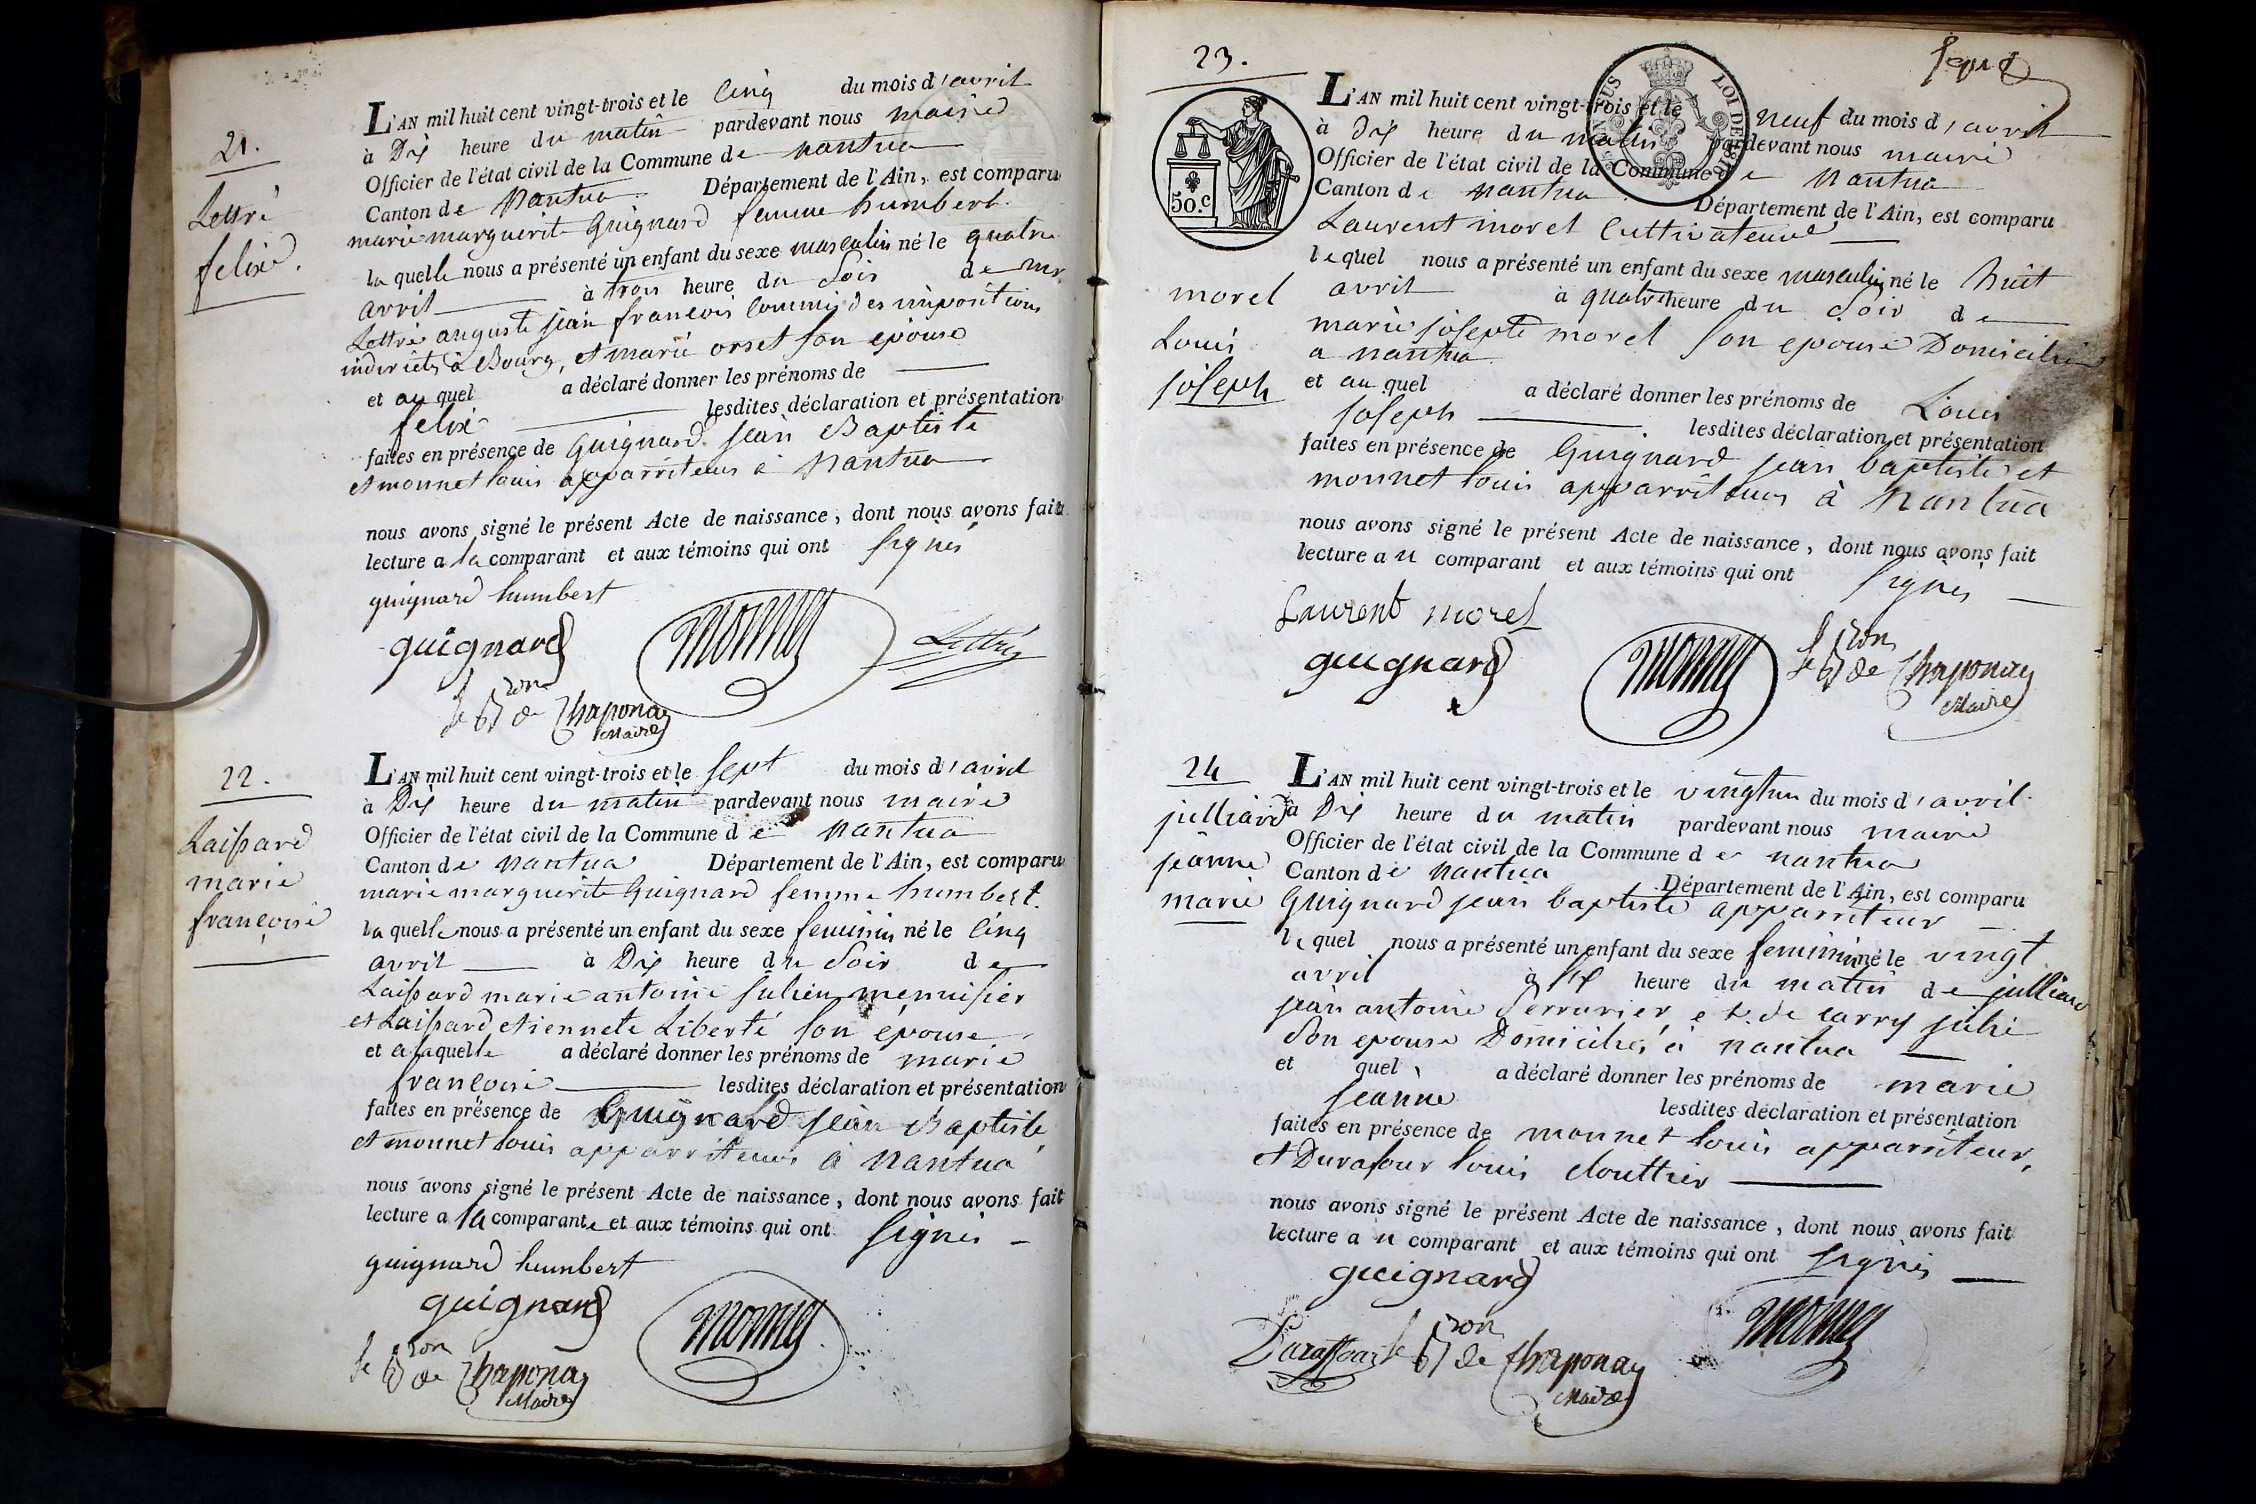 21.
Lettré
felix.
L'AN mil huit cent vingt-trois et le cinq du mois d'avril
à Dix heure du matin pardevant nous maire
Officier de l'état civil de la Commune de nantua
Canton de Nantua Département de l'Ain, est comparu
marie marguerite Guignard femme humbert.
laquelle nous a présenté un enfant du sexe masculin né le quatre
avril à trois heure du soir de mr
Lettré auguste jean françois commis des impositions
indirectes à Bourg, et marie orset son epouse
et au quel a déclaré donner les prénoms de
felix lesdites déclaration et présentation
faites en présence de guignard jean Baptiste
et monnet louis apparriteurs à Nantua
nous avons signé le présent Acte de naissance, dont nous avons fait
lecture a la comparant et aux témoins qui ont signés
guignard humbert
guignard monnet Lettré
le Bon de Chaponay
Maire
22.
Laissard
marie
françoise
L'AN mil huit cent vingt-trois et le sept du mois d'avril
à Dix heure du matin pardevant nous maire
Officier de l'état civil de la Commune de nantua
Canton de nantua Département de l'Ain, est comparu
marie marguerite Guignard femme humbert.
laquelle nous a présenté un enfant du sexe feminin né le cinq
avril à Dix heure du soir de
Laissard marie antoine julien menuisier
et Laissard etiennete Liberté son épouse
et a laquelle a déclaré donner les prénoms de marie
françoise lesdites déclaration et présentation
faites en présence de Guignard jean Baptiste
et monnet louis apparriteurs à Nantua
nous avons signé le présent Acte de naissance, dont nous avons fait
lecture a la comparante et aux témoins qui ont signés
guignard humbert
guignard monnet
le Bon de Chaponay
Maire
23.
50.C
LOI DE 1816
morel
Louis
joseph
L'AN mil huit cent vingt-trois et le neuf du mois d'avril
à dix heure du matin pardevant nous maire
Officier de l'état civil de la Commune de Nantua
Canton de nantua Département de l'Ain, est comparu
Laurent morel Cultivateur
lequel nous a présenté un enfant du sexe masculin né le huit
avril à quatre heure du soir de
marie josephte morel son epouse Domiciliés
a nantua
et au quel a déclaré donner les prénoms de Louis
joseph lesdites déclaration et présentation
faites en présence de Guignard jean baptiste et
monnet louis apparriteurs à Nantua
nous avons signé le présent Acte de naissance, dont nous avons fait
lecture a u comparant et aux témoins qui ont signés
Laurent morel
guignard monnet le Bon de Chaponay
Maire
24
julliard
jeanne
marie
L'AN mil huit cent vingt-trois et le vingtun du mois d'avril
à Dix heure du matin pardevant nous maire
Officier de l'état civil de la Commune de nantua
Canton de nantua Département de l'Ain, est comparu
Guignard jean baptiste apparriteur
lequel nous a présenté un enfant du sexe feminin né le vingt
avril à six heure du matin de julliard
jean antoine serrurier et de carry julie
son epouse Domiciliés à nantua
et quel a déclaré donner les prénoms de marie
jeanne lesdites déclaration et présentation
faites en présence de monnet louis apparriteur,
et Durafour louis clouttier
nous avons signé le présent Acte de naissance, dont nous avons fait
lecture a u comparant et aux témoins qui ont signés
guignard monnet
Duraffour le Bon de Chaponay
Maire